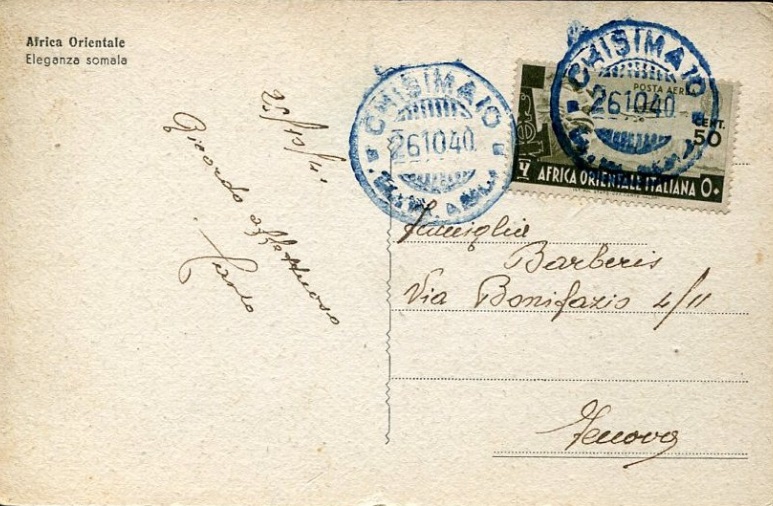 Africa Orientale
Eleganza somala
25/10/4.
Ricordo affettuoso
CHISIMAIO
261040
CHISIMAIO
261040
POSTA AEREA
CENT.
50
AFRICA ORIENTALE ITALIANA
Famiglia
Barberis
Via Bonifazio 4/11
Genova